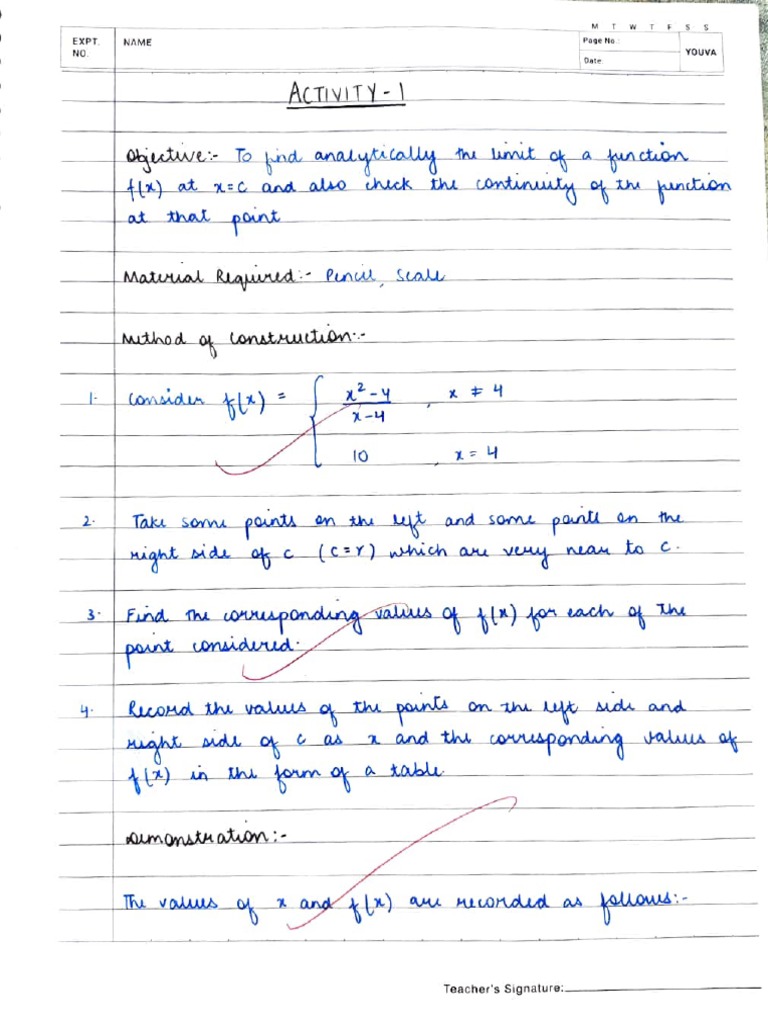 M T W T F S S
EXPT. NO.
NAME
Page No.:
Date:
YOUVA
ACTIVITY-1
Objective:- To find analytically the limit of a function
f(x) at x=c and also check the continuity of the function
at that point
Material Required:- Pencil, Scale
Method of construction:-
1. Consider f(x) = { x²-4 / x-4 , x ≠ 4
10 , x = 4
2. Take some points on the left and some points on the
right side of c (c=r) which are very near to c.
3. Find the corresponding values of f(x) for each of the
point considered.
4. Record the values of the points on the left side and
right side of c as x and the corresponding values of
f(x) in the form of a table.
Demonstration:-
The values of x and f(x) are recorded as follows:-
Teacher's Signature: